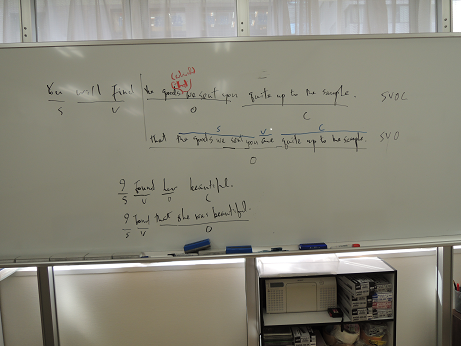 (which)
(that)
You will find the goods we sent you quite up to the sample. SVOC
S V O C
=
S V C
that the goods we sent you are quite up to the sample. SVO
O
I found her beautiful.
S V O C
I found that she was beautiful.
S V O